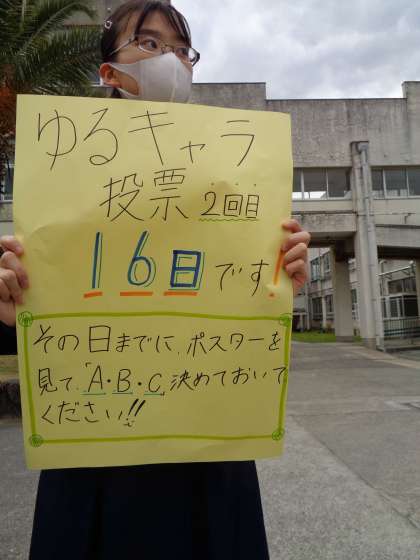 ゆるキャラ
投票 2回目
16日です!
その日までに、ポスターを
見て、「A・B・C」決めておいて
ください!!